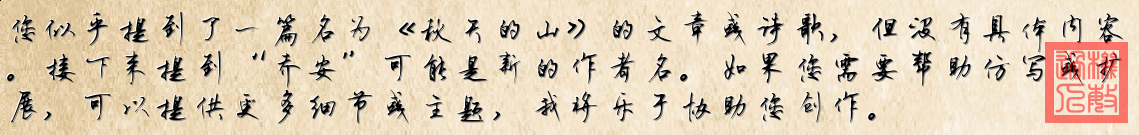 您似乎提到了一篇名为《秋天的山》的文章或诗歌，但没有具体内容
。接下来提到“乔安”可能是新的作者名。如果您需要帮助仿写或扩
展，可以提供更多细节或主题，我将乐于协助您创作。